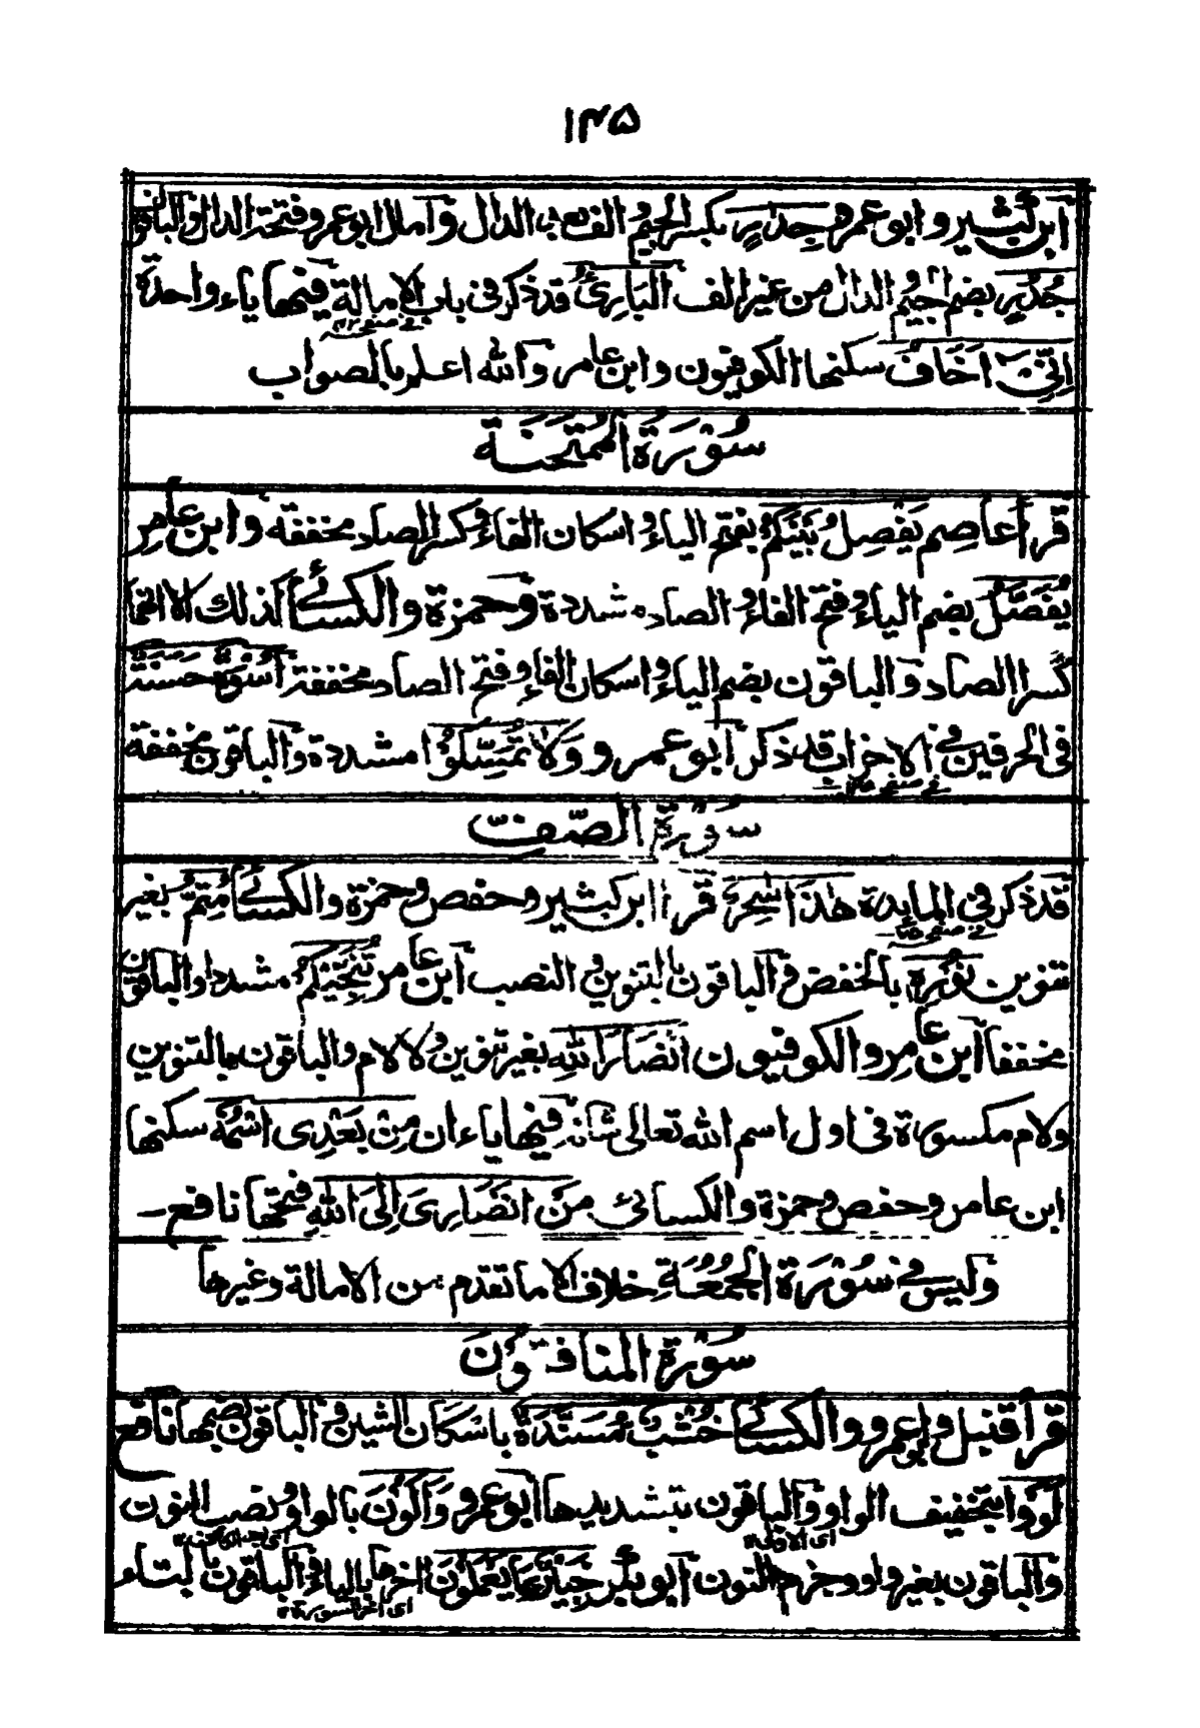 ۱۳۵
ابن كثير و ابو عمرو جِدَارٍ بكسر الجيم و الف بعد الدال و امال ابو عمرو فتحة الدال والباقون
جُدُرٍ بضم الجيم و الدال من غير الف البَارِئُ قد ذكر فى باب الامالة فيها ياء واحدة
اِنِّىَ اَخَافُ سكنها الكوفيون وابن عامر والله اعلم بالصواب
سُوْرَةُ المُمْتَحِنَة
قرأ عاصم يَفْصِلُ بَيْنَكُمْ بفتح الياء و اسكان الفاء و كسر الصاد مخففة و ابن عامر
يُفَصَّلُ بضم الياء و فتح الفاء و الصاد مشددة و حمزة والكسائى كذلك الا انهما
كسرا الصاد والباقون بضم الياء و اسكان الفاء و فتح الصاد مخففة اُسْوَةٌ حَسَنَةٌ
فى الحرفين فى الاحزاب قد ذكر ابو عمرو وَلَا تُمَسِّكُوْا مشددة والباقون مخففة
سورة الصّفّ
قد ذكر فى المايدة هٰذَا سِحْرٌ قرأ ابن كثير و حفص و حمزة والكسائى مُتِمُّ بغير
تنوين نُوْرِهٖ بالخفض و الباقون بالتنوين و النصب ابن عامر تُنَجِّيْكُمْ مشددا والباقون
مخففا ابن عامر والكوفيون اَنْصَارَ اللهِ بغير تنوين ولا لام والباقون بالتنوين
ولام مكسورة فى اول اسم الله تعالى شانه فيها ياءان مِنْ بَعْدِى اسْمُهٗ سكنها
ابن عامر و حفص و حمزة والكسائى مَنْ اَنْصَارِىَ اِلَى اللهِ فتحها نافع —
وليس فى سُوْرَةِ الجُمُعَةِ خلاف الا ما تقدم من الامالة وغيرها
سُوْرَة المنافقون
قرأ قنبل و ابو عمرو والكسائى خُشْبٌ مُسَنَّدَةٌ باسكان الشين و الباقون بضمها نافع
لَوَوْا بتخفيف الواو والباقون بتشديدها ابو عمرو وَاَكُوْنَ بالواو و نصب النون
والباقون بغير واو و جزم النون ابو بكر خَبِيْرٌ بِمَا يَعْمَلُوْنَ اخرها بالياء والباقون بالتاء
اى اخر السورة ۱۲